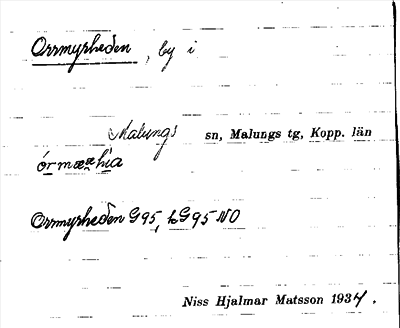 Orrmyrheden, by i
Malungs sn, Malungs tg, Kopp. län
órmææhia
Orrmyrheden G95, bG95 NO
Niss Hjalmar Matsson 1934.